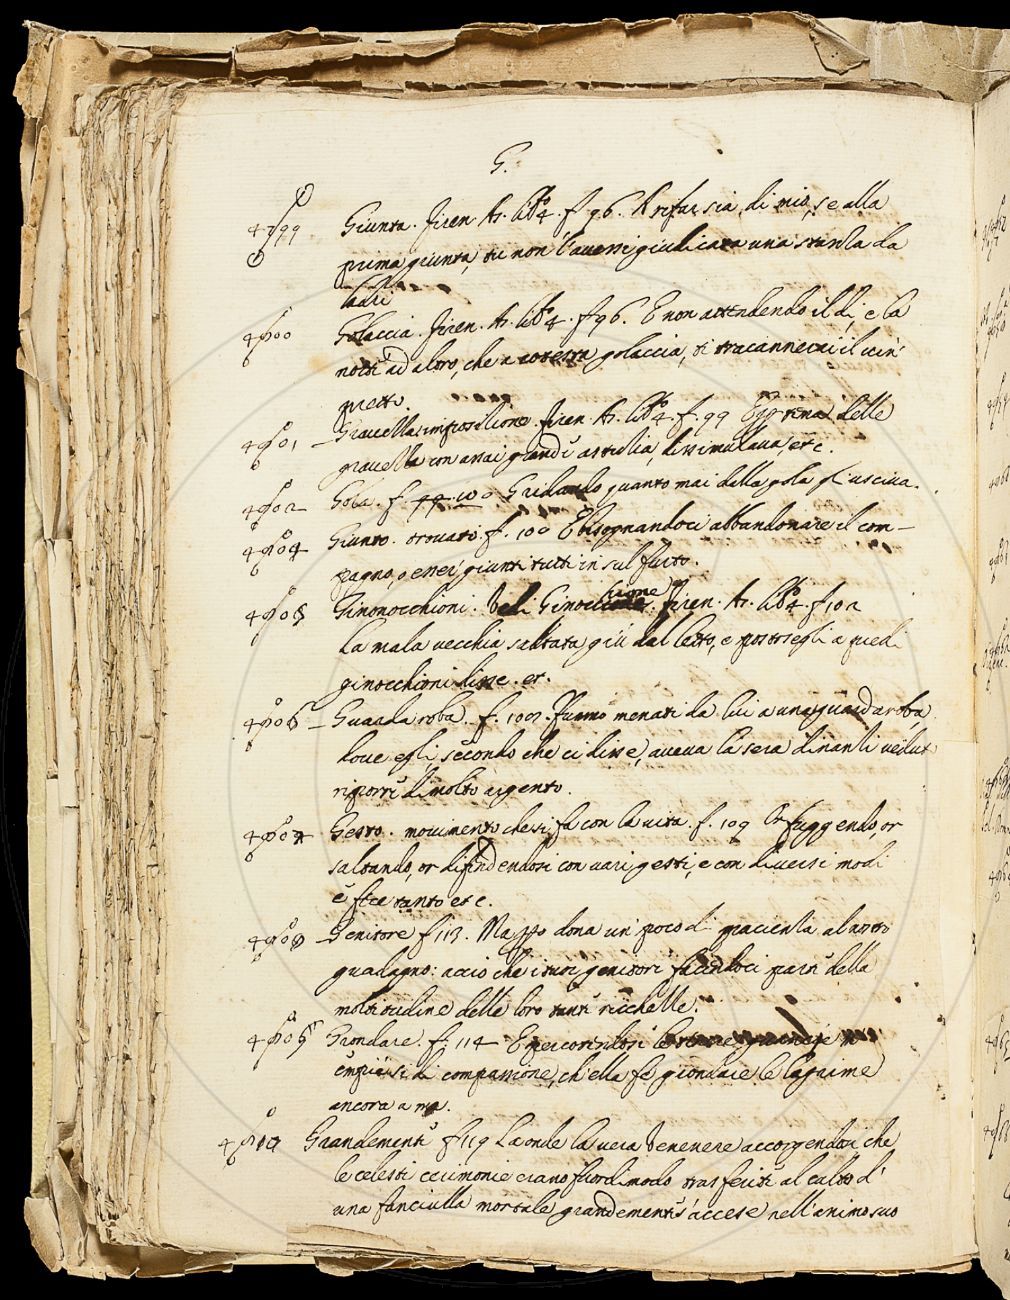 G.
Giunta. Firen. As. lib.º 4. f. 96. A rifar sia, di mio, se alla
prima giunta, tu non l'avessi giudicata una stanza da
ladri
4900 Golaccia. Firen. As. lib.º 4. f. 96. E non attendendo il dì, e la
notte ad altro, che a cotesta golaccia, ti tracannerai il
4901 Gravella imposizione. Firen. As. lib.º 4. f. 99 tema delle
gravella con assai grande astuzia, dissimulava, etc.
4902 Gola. f. Gridando quanto mai della gola gli usciva.
4904 Giunto. trovato. f. 100 E bisognandoci abbandonare il com-
pagno, o esser giunti tutti in sul furto.
4905 Ginonocchioni. Firen. As. lib.º 4. f. 102
La mala vecchia saltata giù dal letto, e postosegli a piedi
ginocchioni disse. et.
4906 Guardaroba. f. Fummo menati da lui a una guardaroba
dove egli, secondo che ci disse, aveva la sera dinanzi vedut
riporre di molto argento.
Gesto. movimento che si fa con la vita. f. 109 Or fuggendo, or
saltando, or difendendosi con vari gesti, e con diversi modi
e fece tanto etc.
Genitore f. 113. dona un poco di pacienza al nostro
guadagno: acciò che i suoi genitori facendoci parte della
moltitudine delle loro tante ricchezze.
4909 Grondare. f. 114 E
empiersi di compassione, ch'ella fe grondare le lagrime
ancora a me.
Grandemente f. 119 Laonde la vera Venere accorgendosi che
le celesti cerimonie erano fuor di modo trasferite al culto d'
una fanciulla mortale grandemente s'accese nell'animo suo